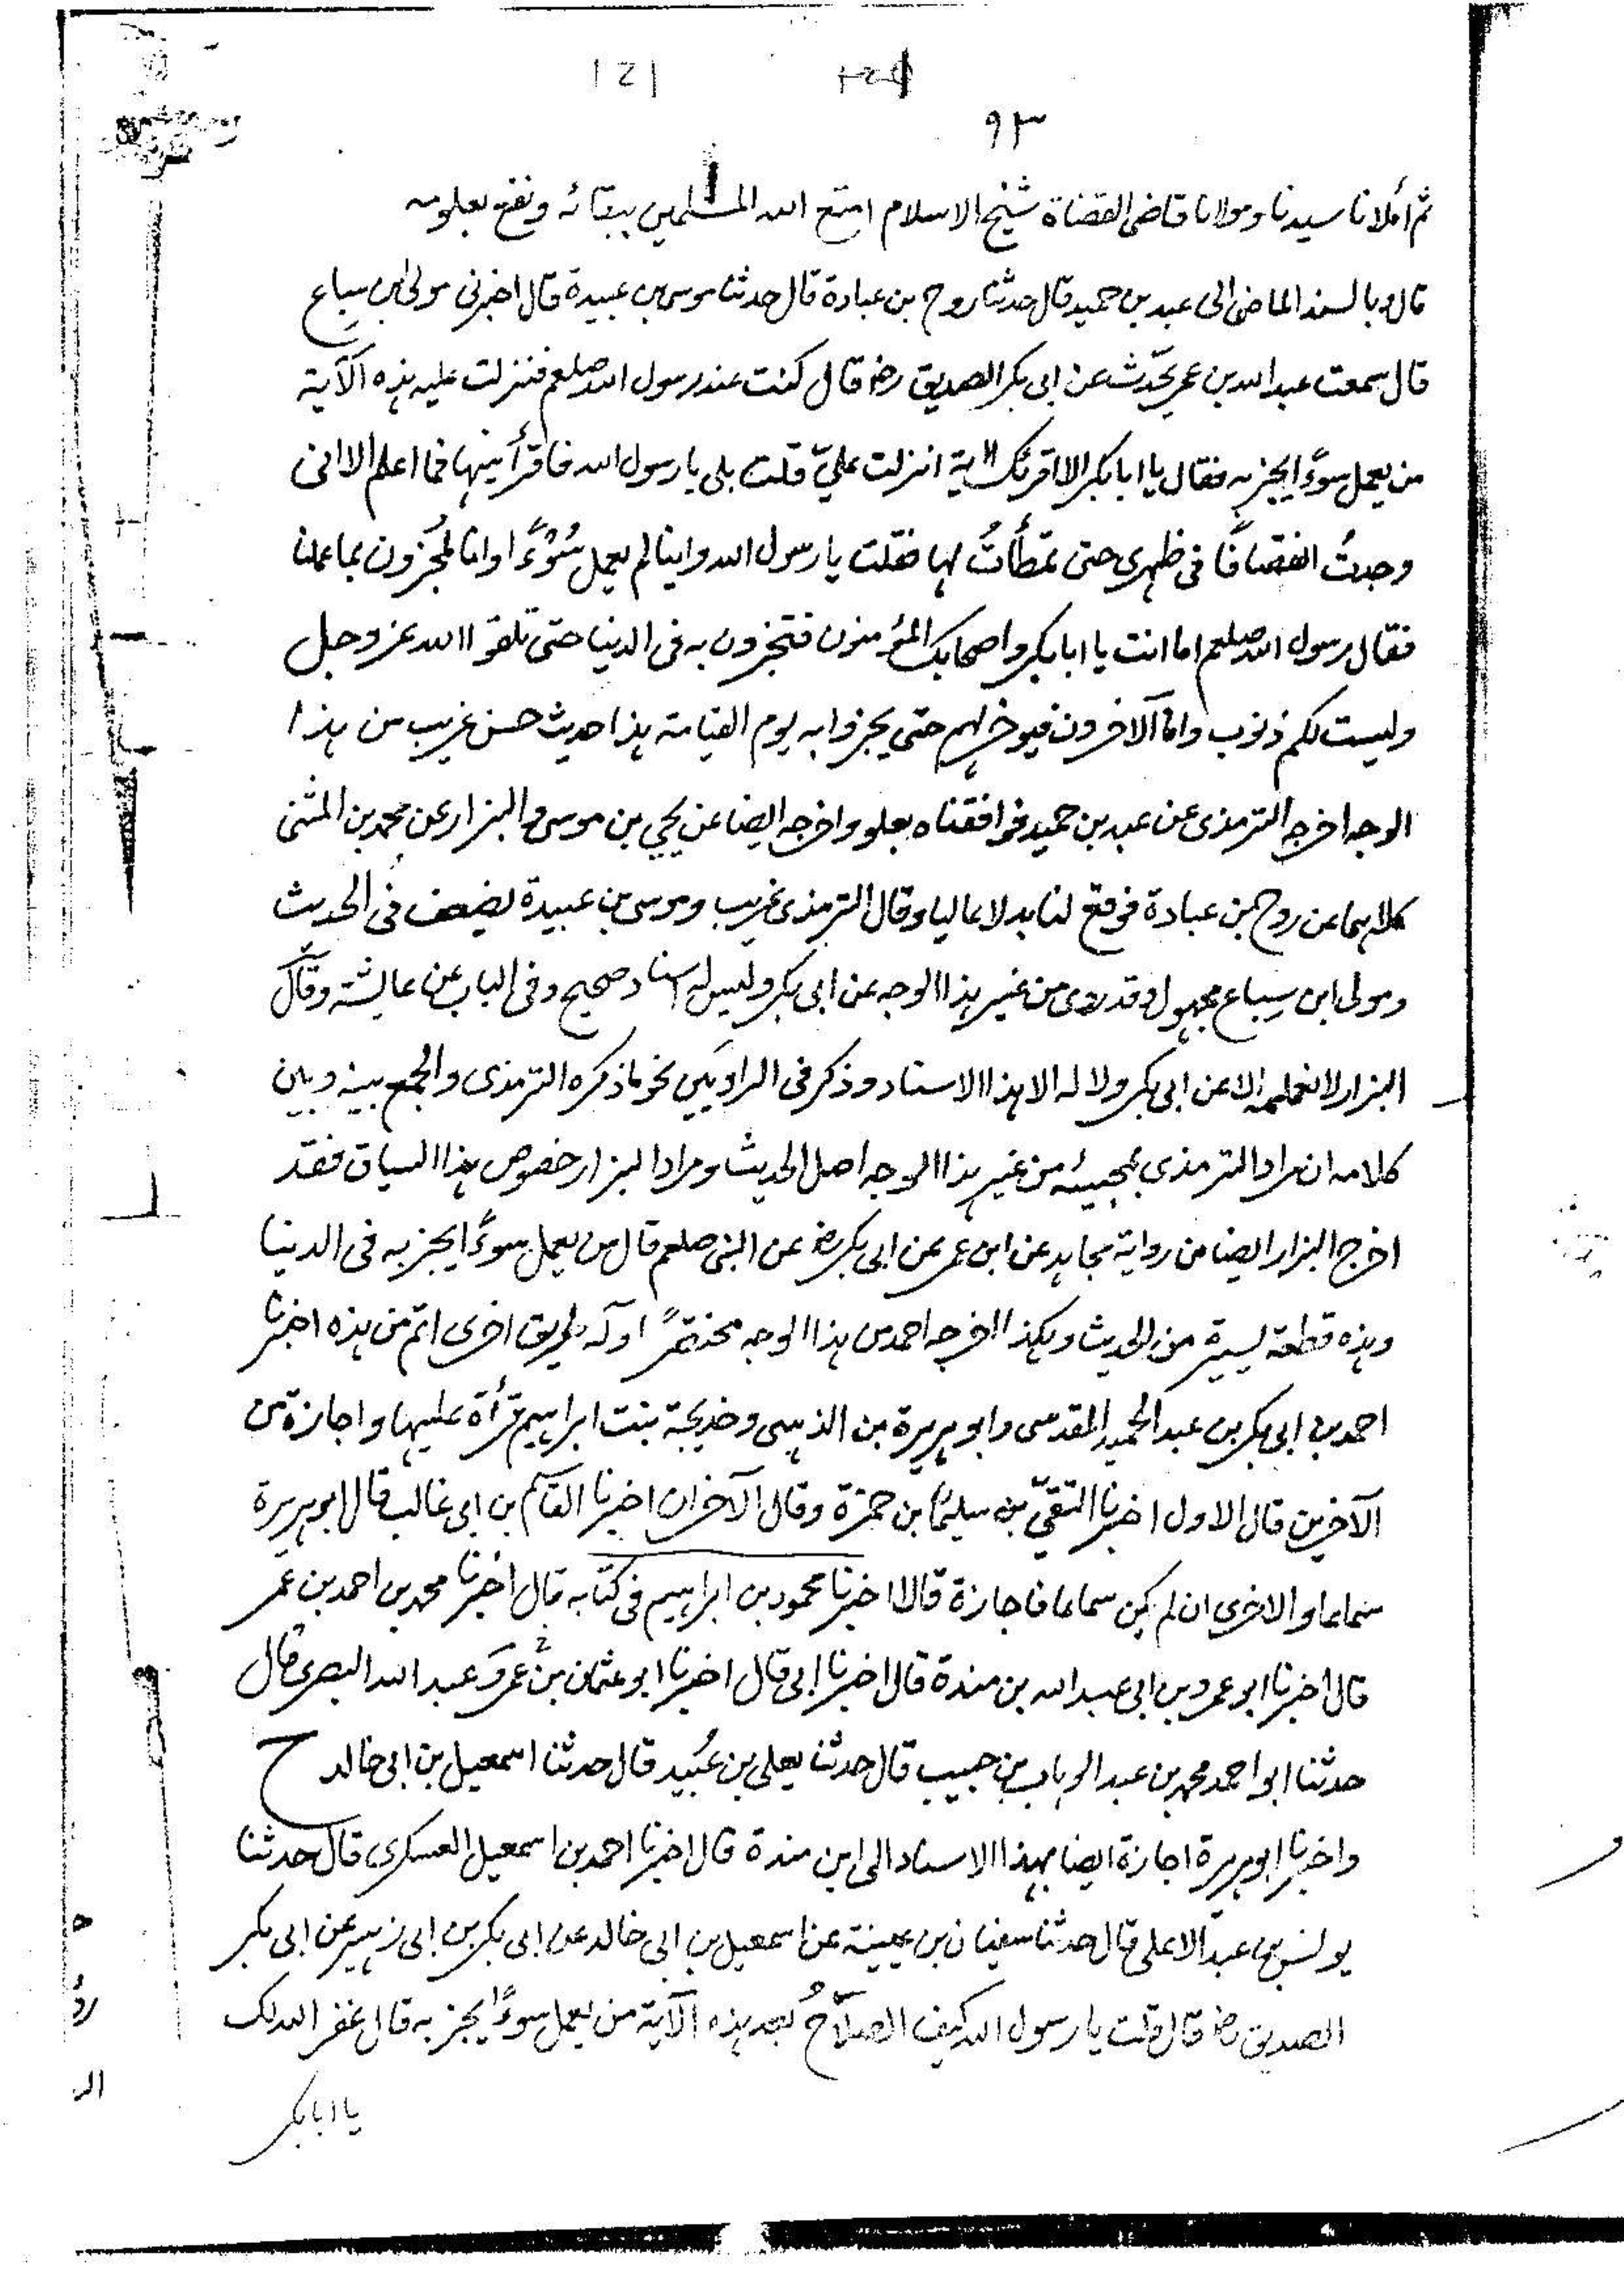 121
93
ثم أملانا سيدنا ومولانا قاضى القضاة شيخ الاسلام امتع الله المسلمين ببقائه ونفع بعلومه
قال وبالسند الماضى الى عبد بن حميد قال حدثنا روح بن عبادة قال حدثنا موسى بن عبيدة قال اخبرنى مولى ابن سباع
قال سمعت عبد الله بن عمر يحدّث عن ابى بكر الصديق رضـ قال كنت عند رسول الله صلعم فنزلت عليه هذه الآية
من يعمل سوءًا يجز به فقال يا ابا بكر الا اقرئك آية انزلت عليّ قلت بلى يا رسول الله فاقرأنيها فما اعلم الا انى
وجدتُ انفصافًا فى ظهرى حتى تمطأتُ لها فقلت يا رسول الله واينا لم يعمل سُوْءًا وانا لمُجزون بما عملنا
فقال رسول الله صلعم اما انت يا ابا بكر واصحابك المؤمنون فتجزون به فى الدنيا حتى تلقوا الله عز وجل
وليست لكم ذنوب واما الآخرون فيوخر لهم حتى يجزوا به يوم القيامة هذا حديث حسن غريب من هذا
الوجه اخرجه الترمذى عن عبد بن حميد فوافقناه بعلو واخرجه ايضا عن يحيى بن موسى والبزار عن محمد بن المثنى
كلاهما عن روح بن عبادة فوقع لنا بدلا عاليا وقال الترمذى غريب وموسى بن عبيدة يضعف فى الحديث
ومولى ابن سِباع مجهول وقد روى من غير هذا الوجه عن ابى بكر وليس له اسناد صحيح وفى الباب عن عايشة وقال
البزار لا نعلمه الا عن ابى بكر ولا له الا هذا الاسناد وذكر فى الراويَين نحو ما ذكره الترمذى والجمع بينه وبين
كلامه ان مراد الترمذي بمجيئه من غير هذا الوجه اصل الحديث ومراد البزار خصوص هذا السياق فقد
اخرج البزار ايضا من رواية مجاهد عن ابن عمر عن ابى بكر رضـ عن النبى صلعم قال من يعمل سوءًا يجز به فى الدنيا
وهذه قطعة يسيرة من الحديث وهكذا اخرجه احمد من هذا الوجه مختصرًا وله طريق اخرى اتم من هذه اخبرنا
احمد بن ابى بكر بن عبد الحميد المقدسى وابو هريرة بن الذهبى وخديجة بنت ابراهيم قرأة عليها واجازة من
الآخرين قال الاول اخبرنا التقيّ بن سليمان بن حمزة وقال الآخران اخبرنا القاسم بن ابى غالب قال ابو هريرة
سماعا والاخرى ان لم يكن سماعا فاجازة قالا اخبرنا محمود بن ابراهيم فى كتابه قال اخبرنا محمد بن احمد بن عمر
قال اخبرنا ابو عمرو بن ابى عبد الله بن مندة قال اخبرنا ابى قال اخبرنا ابو عثمان بن عمرو عبد الله البصرى قال
حدثنا ابو احمد محمد بن عبد الوهاب بن حبيب قال حدثنا يعلى بن عُبيد قال حدثنا اسمعيل بن ابى خالد ح
واخبرنا ابو هريرة اجازة ايضا بهذا الاسناد الى ابن مندة قال اخبرنا احمد بن اسمعيل العسكرى قال حدثنا
يونس بن عبد الاعلى قال حدثنا سفيان بن عيينة عن اسمعيل بن ابى خالد عن ابى بكر بن ابى زهير عن ابى بكر
الصديق رضـ قال قلت يا رسول الله كيف الصلاحُ بعد هذه الآية من يعمل سوءًا يجز به قال غفر الله لك
يا ابا بكر